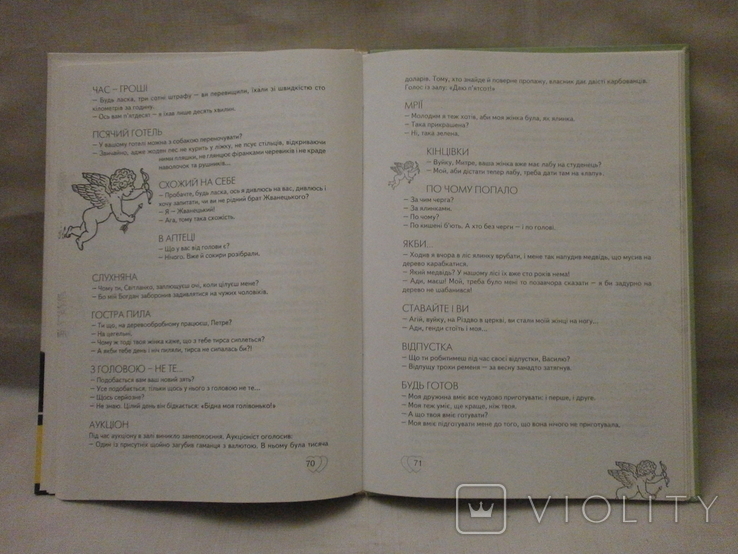 ЧАС – ГРОШІ
– Будь ласка, три сотні штрафу – ви перевищили, їхали зі швидкістю сто
кілометрів за годину.
– Ось вам п'ятдесят – я їхав лише десять хвилин.
ПСЯЧИЙ ГОТЕЛЬ
– У вашому готелі можна з собакою переночувати?
– Звичайно, адже жоден пес не курить у ліжку, не псує стільців, відкриваючи
ними пляшки, не глянцює фіранками черевиків і не краде
наволочок та рушників...
СХОЖИЙ НА СЕБЕ
– Пробачте, будь ласка, ось я дивлюсь на вас, дивлюсь і
хочу запитати, чи ви не рідний брат Жванецького?
– Я – Жванецький!
– Ага, тому така схожість.
В АПТЕЦІ
– Що у вас від голови є?
– Нічого. Вже й сокири розібрали.
СЛУХНЯНА
– Чому ти, Світланко, заплющуєш очі, коли цілуєш мене?
– Бо мій Богдан заборонив задивлятися на чужих чоловіків.
ГОСТРА ПИЛА
– Ти що, на деревообробному працюєш, Петре?
– На цегельні.
– Чому ж тоді твоя жінка каже, що з тебе тирса сиплеться?
– А якби тебе день і ніч пиляли, тирса не сипалась би?!
З ГОЛОВОЮ – НЕ ТЕ...
– Подобається вам ваш новий зять?
– Усе подобається, тільки щось у нього з головою не те...
– Щось серйозне?
– Не знаю. Цілий день він бідкається: «Бідна моя голівонько!»
АУКЦІОН
Під час аукціону в залі виникло замішання. Аукціоніст оголосив:
– Один із присутніх щойно загубив гаманця з валютою. В ньому була тисяча
70
доларів. Тому, хто знайде й поверне пропажу, власник дає двісті карбованців.
Голос із залу: «Даю п'ятсот!»
МРІЇ
– Молодим я теж хотів, аби моя жінка була, як ялинка.
– Така прикрашена?
– Ні, така зелена.
КІНЦІВКИ
– Вуйку, Митре, ваша жінка вже має лабу на студенець?
– Мой, аби дістати тепер лабу, треба дати там на клапу.
ПО ЧОМУ ПОПАЛО
– За чим черга?
– За ялинками.
– По чому?
– По кишені б'ють. А хто без черги – і по голові.
ЯКБИ...
– Ходив я вчора в ліс ялинку врубати, і мене так напудив медвідь, що мусив на
дерево карабкатися.
– Який медвідь? У нашому лісі їх вже сто років нема!
– Ади, маєш! Мой, треба було мені то позавчора сказати – я би задурно на
дерево не шабанився!
СТАВАЙТЕ І ВИ
– Агій, вуйку, на Різдво в церкві, ви стали моїй жінці на ногу...
– Ади, ґенди стоїть і моя...
ВІДПУСТКА
– Що ти робитимеш під час своєї відпустки, Василю?
– Відпущу трохи ременя – за весну занадто затягнув.
БУДЬ ГОТОВ
– Моя дружина вміє все чудово приготувати: і перше, і друге.
– Моя теж уміє, ще краще, ніж твоя.
– А що вона вміє готувати?
– Моя вміє підготувати мене до того, що вона нічого не приготувала.
71
VIOLITY